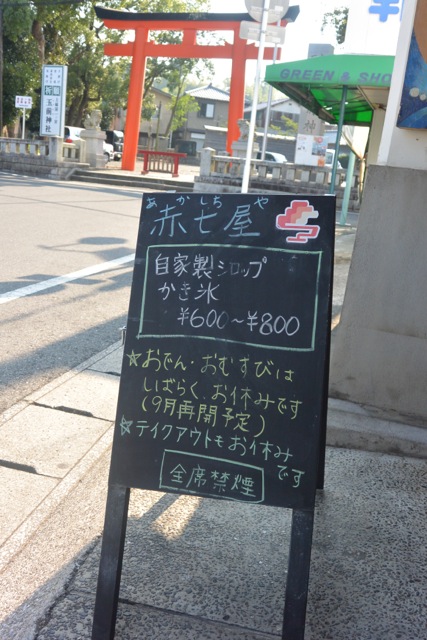 GREEN & SHO
神
玉前神社
あかしち や
赤七屋
自家製シロップ
かき氷
¥600〜¥800
☆おでん・おむすびは
しばらくお休みです
(9月再開予定)
☆テイクアウトもお休み
です
全席禁煙